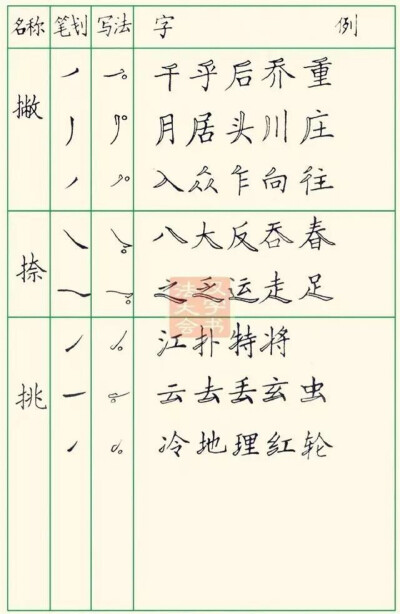 名称 笔划 写法 字 例
撇
千乎后乔重
月居头川庄
入众乍向往
捺
八大反吞春
之乏运走足
汉字书法大会
挑
江扑特将
云去丢玄虫
冷地理红轮